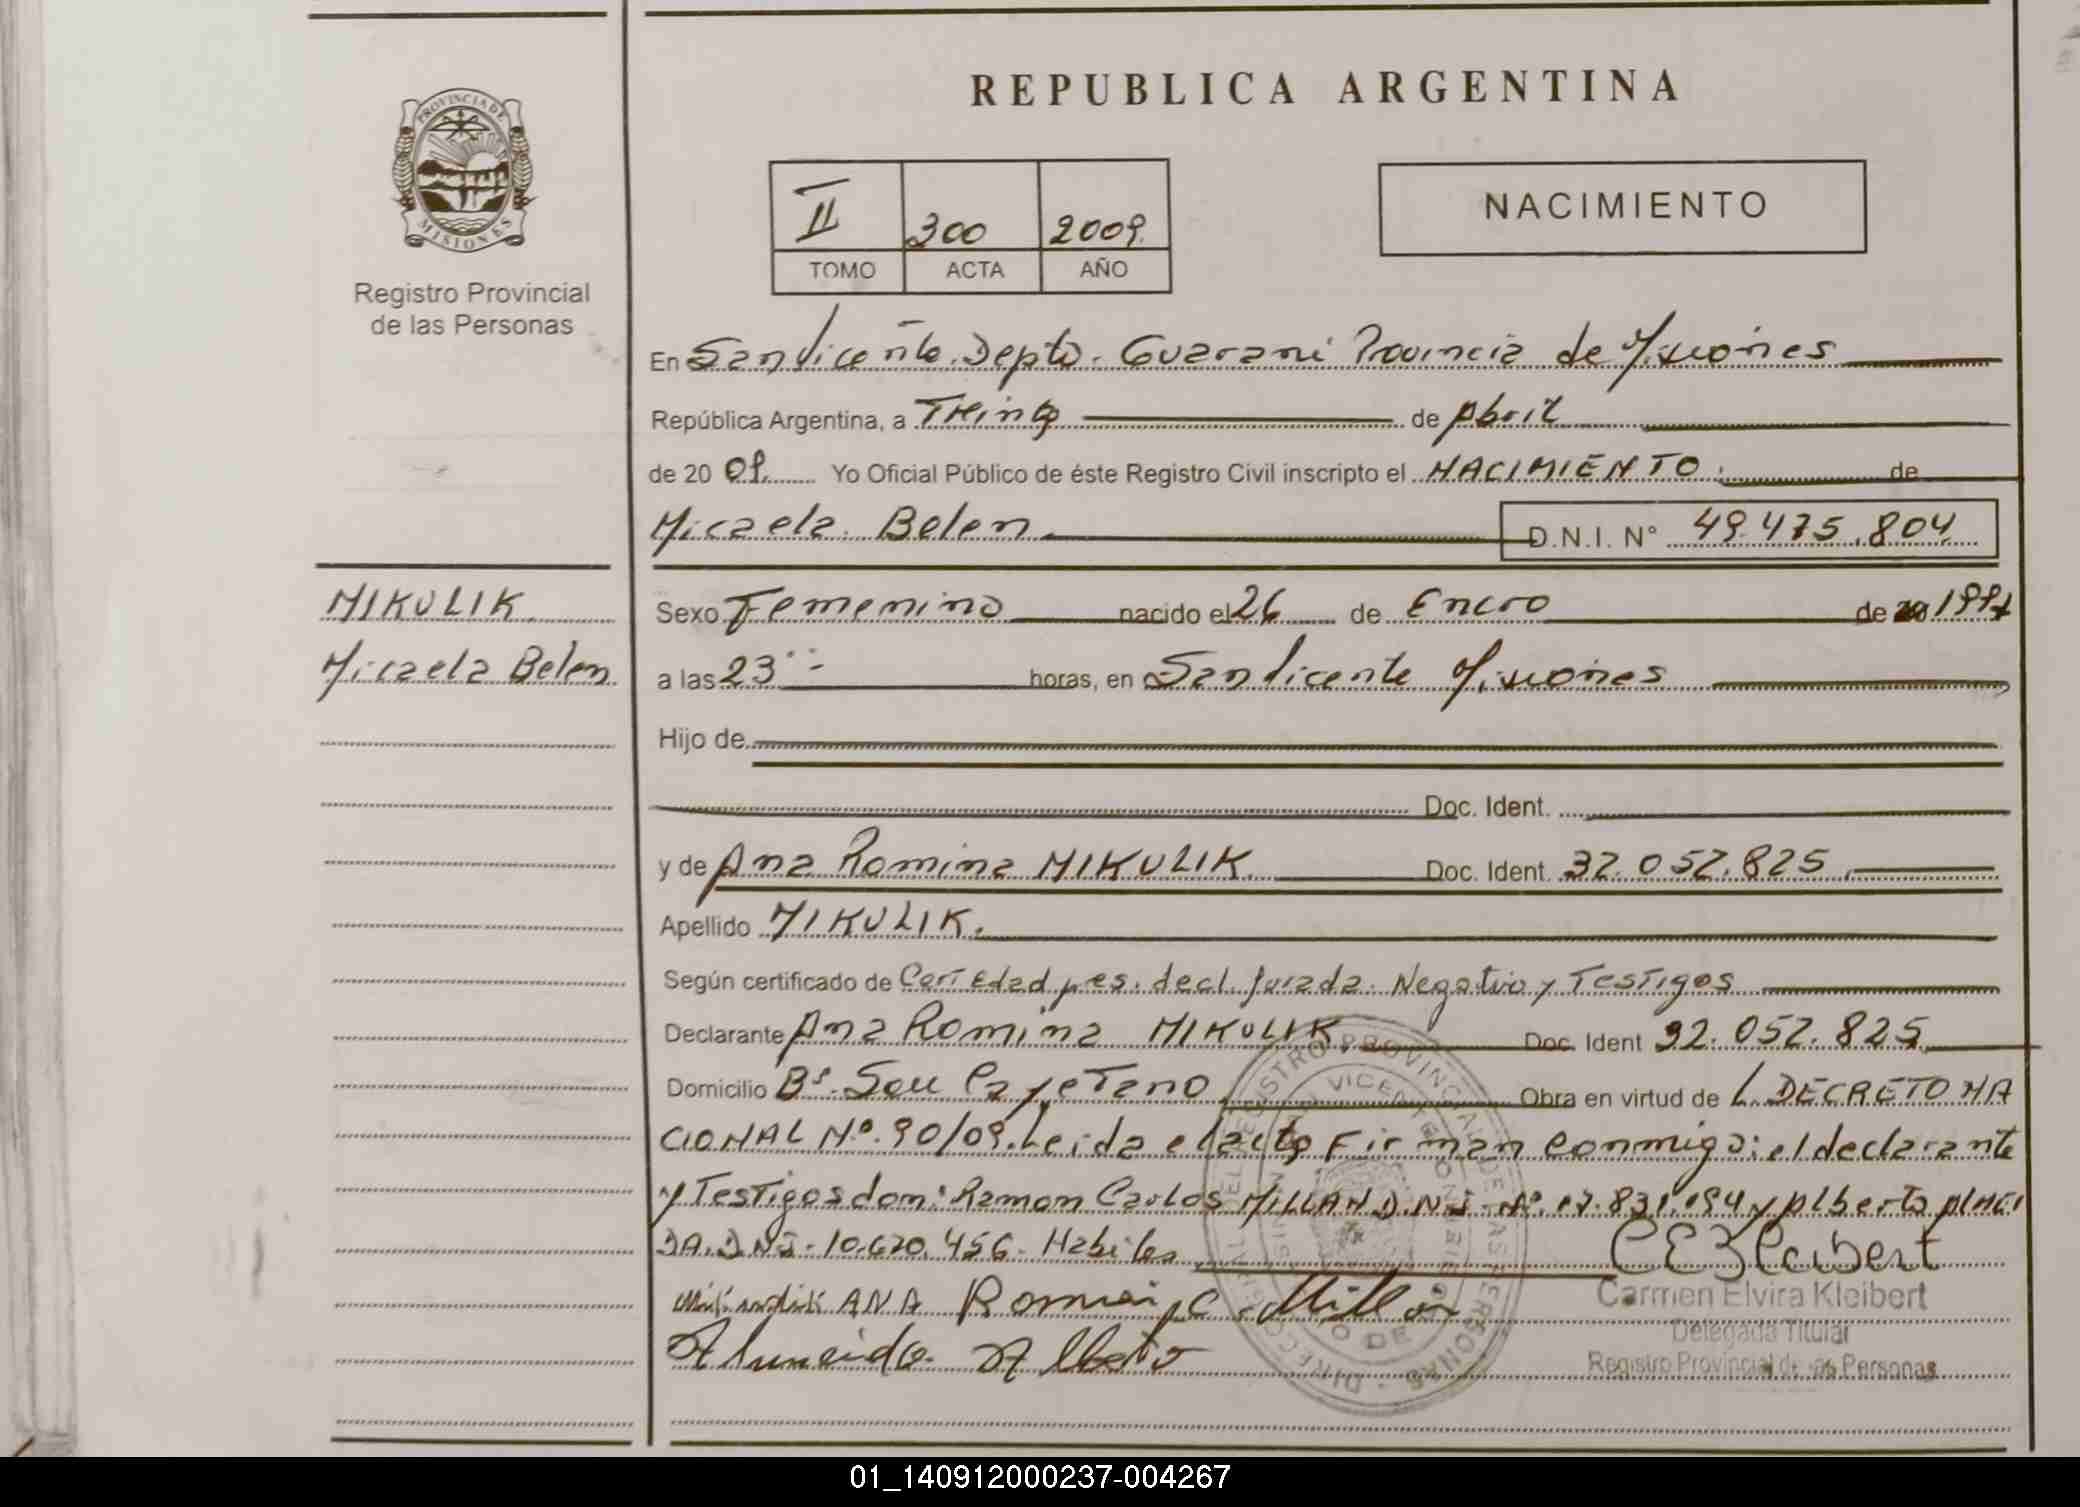 REPUBLICA ARGENTINA
PROVINCIA DE MISIONES
Registro Provincial
de las Personas
II 300 2009
TOMO ACTA AÑO
NACIMIENTO
En San Vicente Depto. Guaraní Provincia de Misiones
República Argentina, a Treinta de Abril
de 20 09. Yo Oficial Público de éste Registro Civil inscripto el NACIMIENTO de
Micaela Belen D.N.I. N° 49.475.804
MIKULIK
Micaela Belen
Sexo Femenino nacido el 26 de Enero de
a las 23 horas, en San Vicente Misiones
Hijo de
Doc. Ident.
y de Ana Romina MIKULIK Doc. Ident. 32.052.825
Apellido MIKULIK.
Según certificado de Cert Edad pres. decl. Jurada. Negativo y Testigos
Declarante Ana Romina MIKULIK Doc. Ident 32.052.825
Domicilio B° San Cayetano Obra en virtud de L. DECRETO NA
CIONAL N°. 90/09. Leida el acta Firman conmigo: el declarante
y Testigos don: Ramon Carlos MILLAN D.N.I. N°. 17.831.194 y Alberto
DA. D.N.I. 10.620.456. Habiles
ANA Romina Millan
Almeida Alberto
CEKleibert
Carmen Elvira Kleibert
Delegada Titular
Registro Provincial de las Personas
01_140912000237-004267